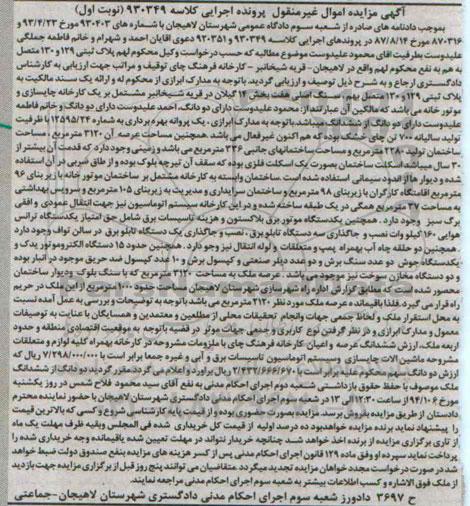 آگهی مزایده اموال غیرمنقول پرونده اجرایی کلاسه ۹۳۰۳۴۹ (نوبت اول)
بموجب دادنامه های صادره از شعبه سوم دادگاه عمومی شهرستان لاهیجان با شماره های ۹۳۰۴۰۳ مورخ ۹۳/۴/۲۳ و
۸۷۰۳۱۶ مورخ ۸۷/۸/۱۴ در پرونده‌های اجرایی کلاسه ۹۳۰۳۴۹ و ۹۳۰۳۵۱ دعوی آقایان احمد و شهرام و خانم فاطمه جملگی
علیدوست بطرفیت آقای محمود علیدوست موضوع مطالبه که حسب درخواست وکیل محکوم لهم پلاک ثبتی ۱۲۹ و ۱۳۰ متصل
به هم به نفع محکوم لهم واقع در لاهیجان - قریه شیخانبر - کارخانه فرهنگ چای توقیف و مراتب جهت ارزیابی به کارشناس
دادگستری ارجاع و به شرح ذیل توصیف و ارزیابی گردید. باتوجه به مدارک ابرازی از محکوم له و ارائه یک سند مالکیت به
پلاک ثبتی ۱۲۹ و ۱۳۰ متصل بهم از سنگ اصلی هفت بخش ۱۴ گیلان در قریه شیخانبر مشتمل بر یک کارخانه چایسازی و
موتور خانه می باشد که مالکین آن عبارتنداز: محمود علیدوست دارای دو دانگ، احمد علیدوست دارای دو دانگ و خانم فاطمه
علیدوست دارای دو دانگ مشاعا میباشد. باتوجه به مدارک ابرازی، یک پروانه بهره برداری به شماره ۱۲۵۹۵/۲۴ با ظرفیت
تولید سالیانه ۷۰۰ تن چای خشک صادر شده که هم اکنون غیرفعال می باشد. همچنین مساحت عرصه آن ۳۱۲۰ مترمربع، مساحت
ساختمان تولید ۲۲۸۰ مترمربع و مساحت ساختمانهای جانبی ۳۳۶ مترمربع می باشد و زمینی وجود دارد که قدمت آن بیشتر از
۳۰ سال میباشد. اسکلت ساختمان بصورت یک اسکلت فلزی بوده که سقف آن تیرچه بلوک بوده و از طاق ضربی در آن استفاده
شده و دیوارها از اندود سیمانی استفاده شده است. ساختمان وابسته به کارخانه مشتمل بر ساختمان موتور خانه با زیربنای ۹۶
مترمربع اقامتگاه کارگران با زیربنای ۹۸ مترمربع و ساختمان سرایداری و مدیریت به زیربنای ۱۰۵ مترمربع و سرویس بهداشتی
۳۷ مترمربع همگی در یک طبقه ساخته شده و در این کارخانه سیستم اتوماسیون نیز جهت انتقال عمودی و افقی
برگ سبز وجود دارد. همچنین یکدستگاه موتور برق بلاکستون و هزینه تاسیسات برق شامل حق امتیاز یکدستگاه ترانس
هوایی ۱۶۰ کیلو وات نصب و جاگذاری سه دستگاه تابلو برق، نصب و جاگذاری یک دستگاه تابلو برق در سالن تواف وجود دارد
همچنین دو حلقه چاه آب بهمراه پمپ و متعلقات و لوله انتقال نیز وجود دارد. همچنین حدود ۱۵ دستگاه الکتروموتور یدک و
یکدستگاه جوش دو عدد سنگ برش و دو عدد دیلر صنعتی و کپسول برش و ۱۰ عدد کپسول ضد حریق موجود در انبار بوده
و دو دستگاه مخازن سوخت نیز موجود می باشد. عرصه ملک به مساحت ۳۱۲۰ مترمربع که با سنگ بلوک و دیوار ساختمان
محصور شده است که مطابق گزارش اداره راه شهرسازی شهرستان لاهیجان ساختا حدود ۱۰۰۰ مترمربع از این ملک در حریم
راه قرار می گیرد. فلذا باقیمانده عرصه ملک مورد نظر ۲۱۲۰ مترمربع می باشد با توجه به توضیحات و بررسی به عمل آمده نسبت
به محل استقرار ملک و لحاظ جمیع جهات وانجام تحقیقات محلی از مطلعین و معتمدین و همسایگان با عنایت به توصیفات
معمول و مدارک ابرازی و در نظر گرفتن نوع کاربری و جمیع جهات موثر در قضیه باتوجه به موقعیت اقتصادی منطقه و حدود
اربعه ملک، ارزش ششدانگ عرصه و اعیان کارخانه فرهنگ چای با ملزومات مشروحه در کارخانه بهمراه کلیه لوازم و متعلقات
مشروحه ماشین آلات چایسازی و سیستم اتوماسیون تاسیسات برق و آبی و غیره جمعا برابر است با ۷/۲۹۸/۰۰۰/۰۰۰ ریال که
ارزش دو دانگ از سهم محکوم علیه برابر با ۲/۴۳۲/۶۶۶/۶۷۰ ریال برآورد و اعلام می گردد. مقرر گردید دو دانگ از ششدانگ
ملک موصوف با حفظ حقوق بازداشتی شعبه دوم اجرای احکام مدنی به نفع آقای سید محمود فلاح شمس در روز یکشنبه
مورخ ۹۴/۱۰/۶ از ساعت ۱۲:۳۰ الی ۱۳ در شعبه سوم اجرای احکام مدنی دادگستری شهرستان لاهیجان با حضور نماینده محترم
دادستان از طریق مزایده بفروش برسد. مزایده بصورت حضوری بوده و از قیمت پایه کارشناس شروع و کسی که بالاترین قیمت
را پیشنهاد نماید برنده مزایده خواهد بود ده درصد اولیه از قیمت کل خریداری شده فی المجلس وبقیه ظرف مهلت یک ماه
از تاری برگزاری مزایده از برنده اخذ خواهد شد چنانچه خریدار نتواند در مهلت تعیین شده باقیمانده وجه خریداری شده را
پرداخت نماید سپرده او وفق ماده ۱۲۹ قانون اجرای احکام مدنی پس از کسر هزینه های مزایده بنفع صندوق دولت ضبط خواهد
شد در صورت درخواست مجدد خواهان مزایده تجدید میگردد متقاضیان می توانند پنج روز قبل از برگزاری مزایده جهت بازدید
از ملک فوق الاشاره و کسب اطلاعات بیشتر به شعبه سوم اجرای احکام مدنی مراجعه نمایند.
ح ۳۶۹۷ دادورز شعبه سوم اجرای احکام مدنی دادگستری شهرستان لاهیجان-جماعتی